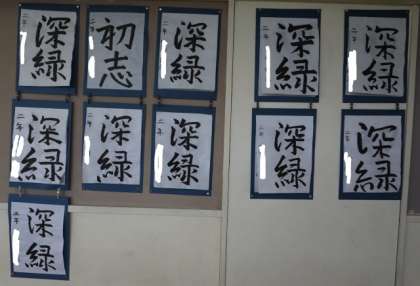 二年 深緑
二年 初志
二年 深緑
二年 深緑
二年 深緑
二年 深緑
二年 深緑
二年 深緑
二年 深緑
二年 深緑
二年 深緑
二年 深緑